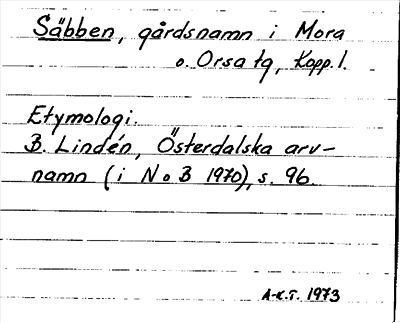 Säbben, gårdsnamn i Mora
o. Orsa tg, Kopp. l.
Etymologi.
B. Lindén, Österdalska arv-
namn (i N o B 1970), s. 96.
A-K.T. 1973